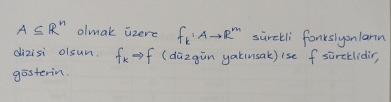 A ⊆ ℝⁿ olmak üzere fₖ: A → ℝᵐ sürekli fonksiyonların
dizisi olsun. fₖ ⇉ f (düzgün yakınsak) ise f süreklidir,
gösterin.